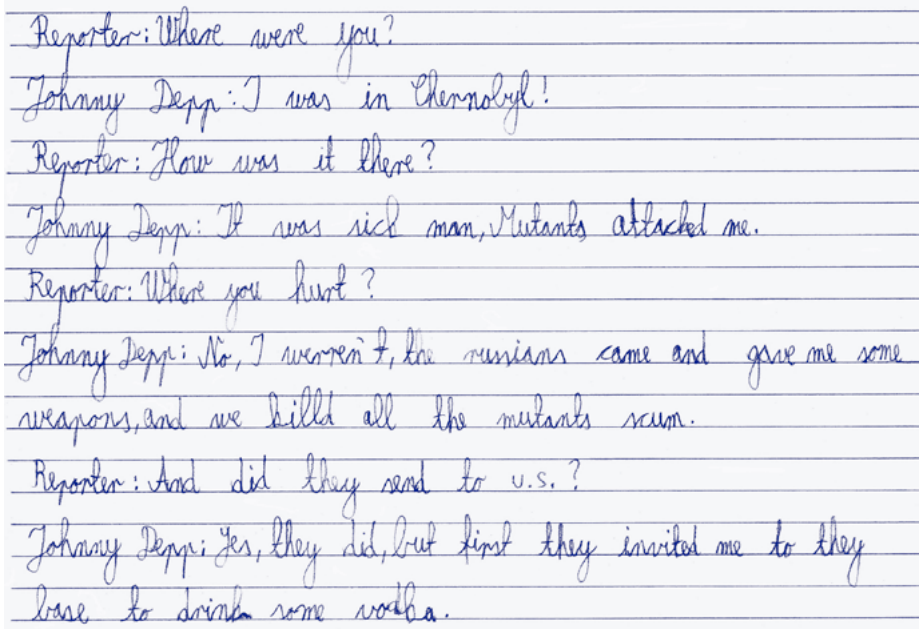 Reporter: Where were you?
Johnny Depp: I was in Chernobyl!
Reporter: How was it there?
Johnny Depp: It was sick man, Mutants attacked me.
Reporter: Where you hurt?
Johnny Depp: No, I werren't, the russians came and gave me some
weapons, and we killd all the mutants scum.
Reporter: And did they send to U.S.?
Johnny Depp: Yes, they did, but first they invited me to they
base to drink some vodka.